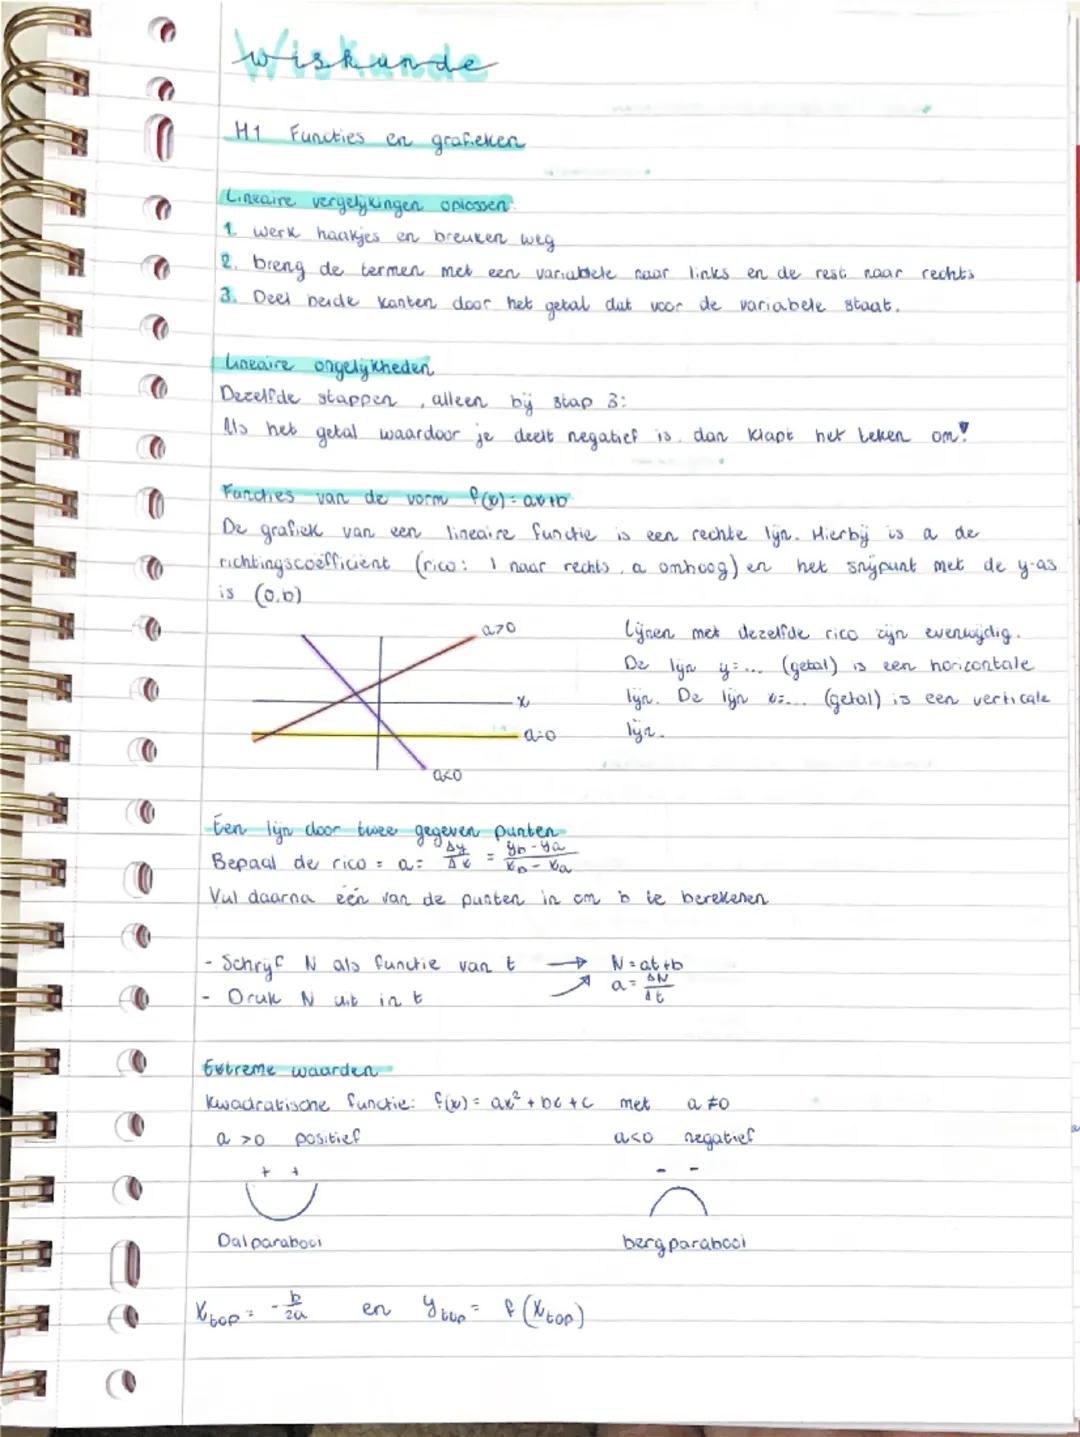 Wiskunde
H1 Functies en grafieken
Lineaire vergelijkingen oplossen:
1. werk haakjes en breuken weg
2. breng de termen met een variabele naar links en de rest naar rechts
3. Deel beide kanten door het getal dat voor de variabele staat.
Lineaire ongelijkheden
Dezelfde stappen, alleen bij stap 3:
Als het getal waardoor je deelt negatief is, dan klapt het teken om!
Functies van de vorm f(x)=ax+b
De grafiek van een lineaire functie is een rechte lijn. Hierbij is a de
richtingscoëfficiënt (rico: 1 naar rechts, a omhoog) en het snijpunt met de y-as
is (0,b)
a>0
x
a=0
a<0
Lijnen met dezelfde rico zijn evenwijdig.
De lijn y=... (getal) is een horizontale
lijn. De lijn x=... (getal) is een verticale
lijn.
Een lijn door twee gegeven punten
Bepaal de rico = a = Δy/Δx = yb-ya/xb-xa
Vul daarna één van de punten in om b te berekenen
- Schrijf N als functie van t → N=at+b
- Druk N uit in t → a=ΔN/Δt
Extreme waarden
Kwadratische functie: f(x)=ax²+bx+c met a≠0
a>0 positief a<0 negatief
+ + - -
Dalparabool bergparabool
xtop = -b/2a en ytop = f(xtop)